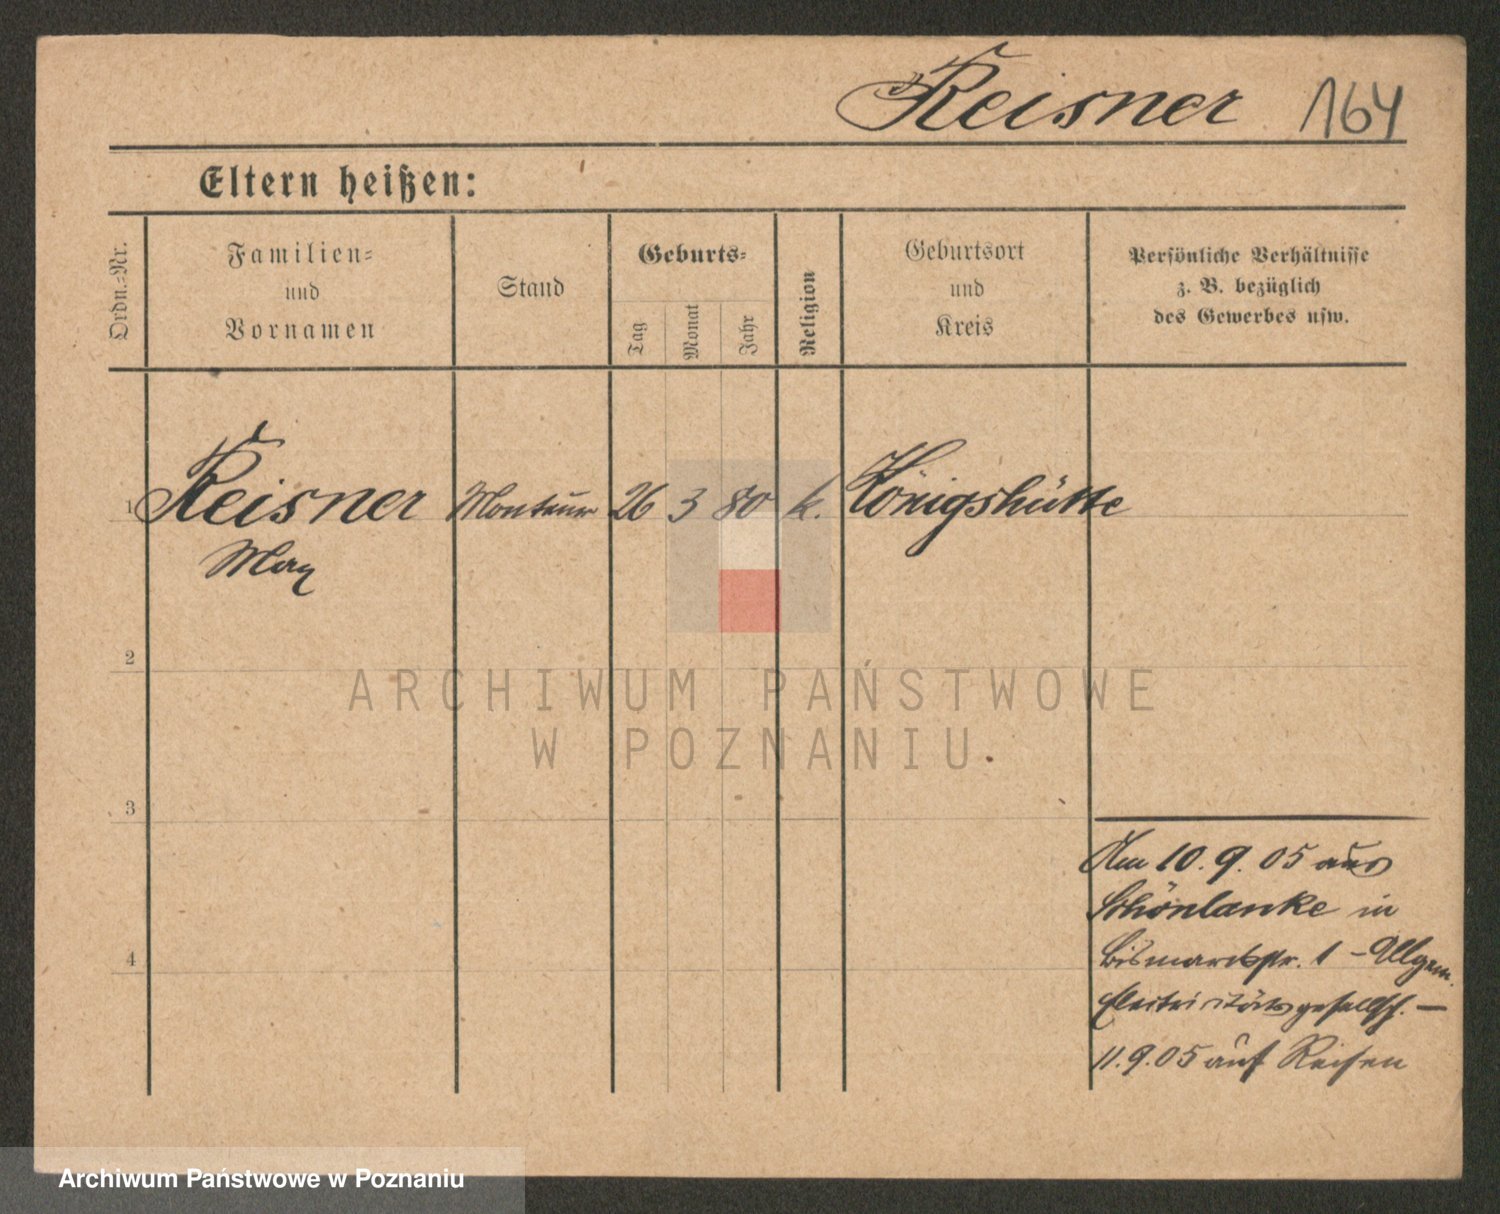 Reisner 164
Eltern heißen:
Ordn.-Nr.
Familien-
und
Vornamen
Stand
Geburts-
Tag
Monat
Jahr
Religion
Geburtsort
und
Kreis
Persönliche Verhältnisse
z. B. bezüglich
des Gewerbes usw.
1 Reisner Monteur 26 3 80 k. Königshütte
Max
2
3
4
Am 10.9.05 aus
Schönlanke in
Bismarckstr. 1 – Allgem.
Electricitätsgesellsch. –
11.9.05 auf Reisen
ARCHIWUM PAŃSTWOWE
W POZNANIU
Archiwum Państwowe w Poznaniu